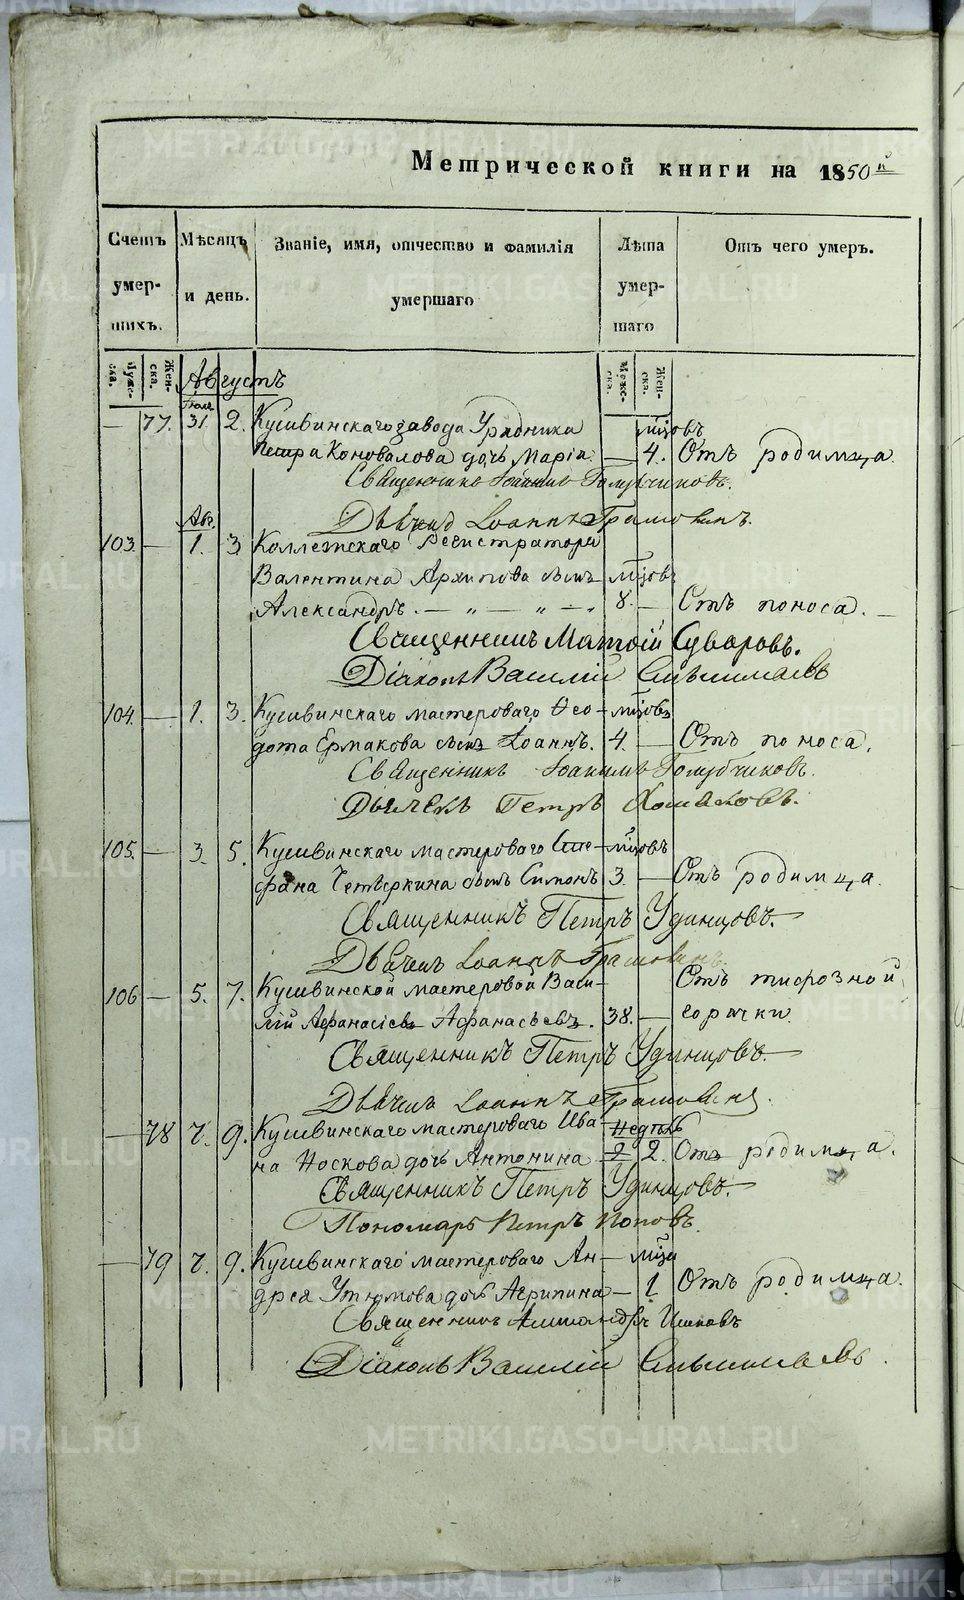 Метрической книги на 1850й
Счетъ умерших. Мѣсяцъ и день. Званіе, имя, отчество и фамилія умершаго Лѣта умершаго Отъ чего умеръ.
Мужеска. Женска. Августъ Мужеска. Женска.
Іюля
— 77. 31. 2. Кушвинскаго завода Урядника — м͠цовъ
Петра Коновалова дочь Марія — 4. Отъ родимца.
Священникъ Іоакимъ Голубчиковъ.
Дьячекъ Іоаннъ
Ав.
103. — 1. 3 Коллежскаго Регистратора
Валентина Архипова сынъ м͠цовъ
Александръ. — „ — „ — „ 8. — Отъ поноса. —
Священникъ Матѳій Суворовъ.
Діаконъ Василій
104. — 1. 3. Кушвинскаго мастероваго Ѳео- м͠цовъ
дота Ермакова сынъ Іоаннъ. 4. — Отъ поноса.
Священникъ Іоакимъ Голубчиковъ.
Дьячекъ Петръ
105. — 3. 5. Кушвинскаго мастероваго Сте- м͠цовъ
фана Четѣркина сынъ Симонъ 3. — Отъ родимца.
Священникъ Петръ Удинцовъ.
Дьячекъ Іоаннъ
106 — 5. 7. Кушвинской мастеровой Васи- Отъ тифозной
лій Афанасіевъ Афанасьевъ. 38. — горячки.
Священникъ Петръ Удинцовъ.
Дьячекъ Іоаннъ
— 78 7. 9. Кушвинскаго мастероваго Ива- Недѣль
на Носкова дочь Антонина 2 2. Отъ родимца.
Священникъ Петръ Удинцовъ.
Пономарь Петръ Поповъ.
— 79 7. 9. Кушвинскаго мастероваго Ан- — м͠ца
дрея Утюмова дочь Агрипина — 1. Отъ родимца.
Священникъ Александръ
Діаконъ Василій
METRIKI.GASO-URAL.RU